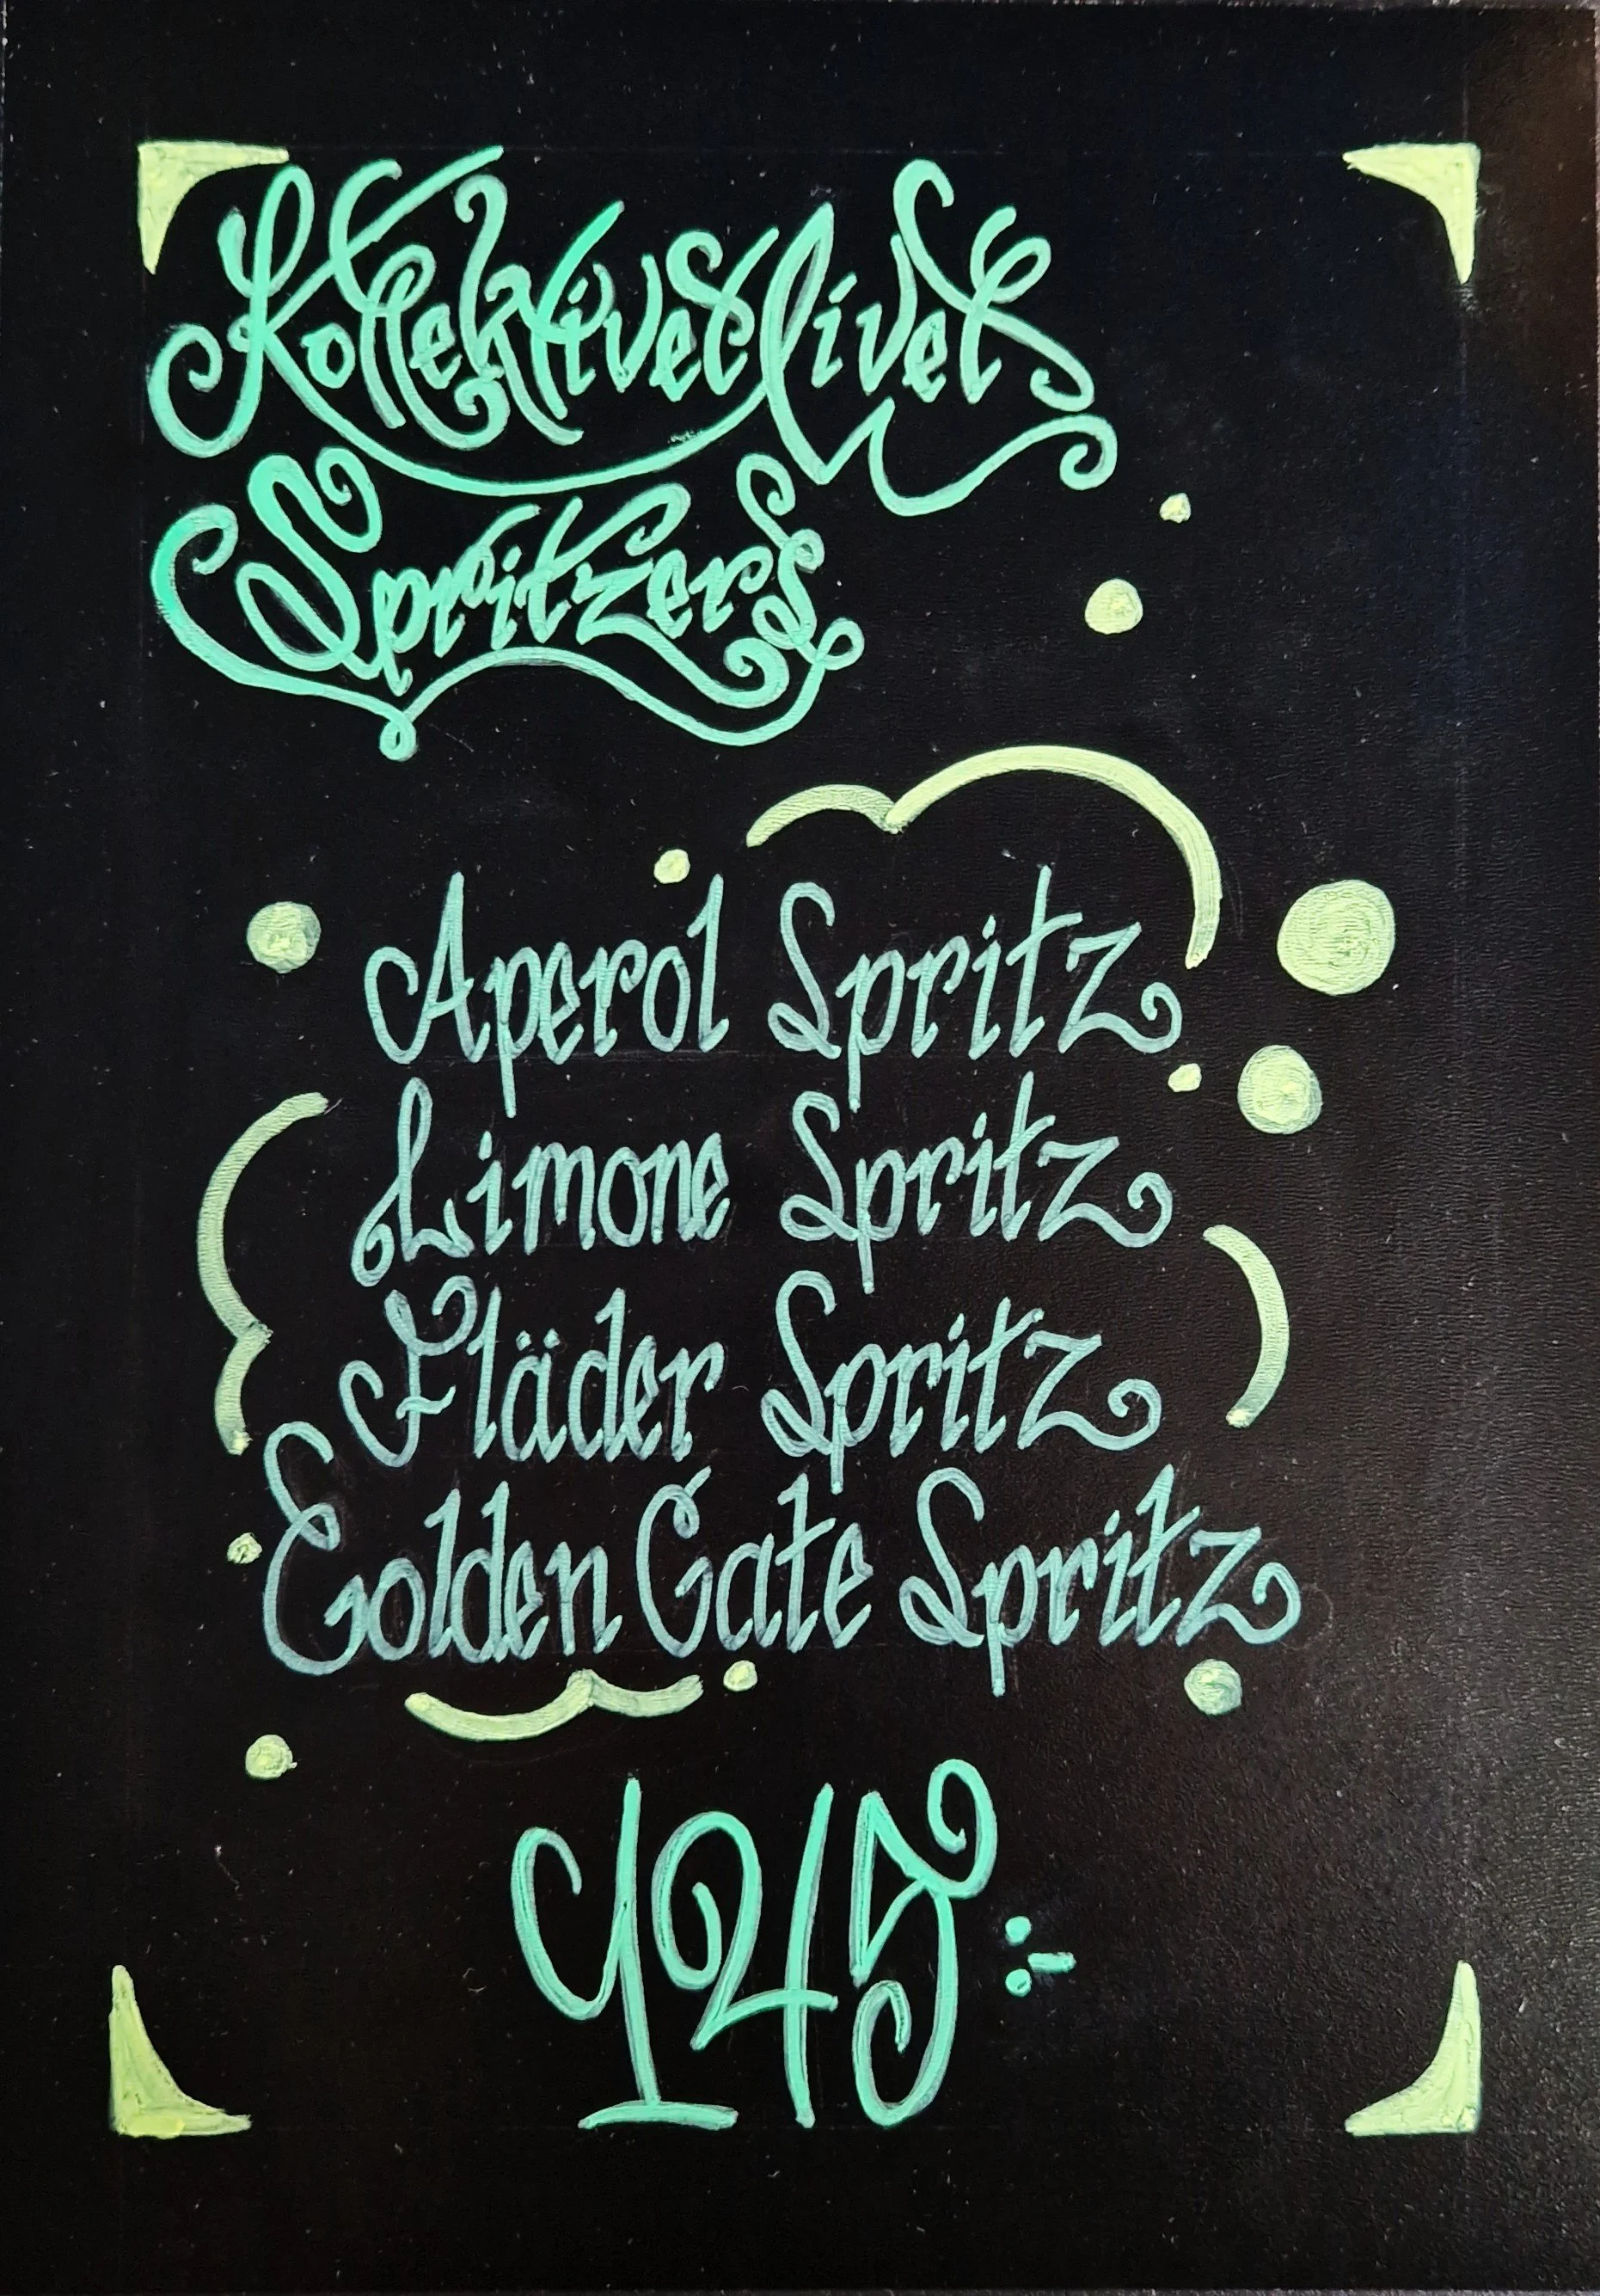 Kollektivet Livet
Spritzers
Aperol Spritz
Limone Spritz
Fläder Spritz
Golden Gate Spritz
145:-